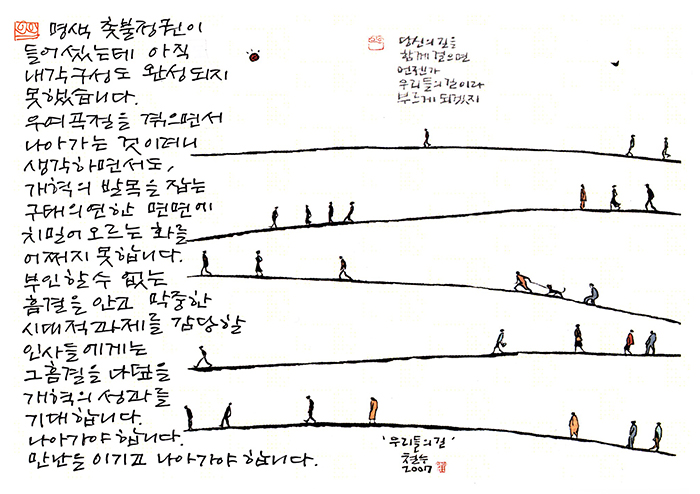 명색 촛불정권이
들어섰는데 아직
내각구성도 완성되지
못했습니다.
우여곡절을 겪으면서
나아가는 것이려니
생각하면서도,
개혁의 발목을 잡는
구태의연한 면면에
치밀어 오르는 화를
어쩌지 못합니다.
부인할수 없는
흠결을 안고 막중한
시대적과제를 감당할
인사들에게는
그흠결을 나덮을
개혁의 성과를
기대합니다.
나아가야 합니다.
만난을 이기고 나아가야 합니다.
당신의 길을
함께 걸으면
언젠가
우리들의 길이라
부르게 되겠지
'우리들의 길'
철수
2007